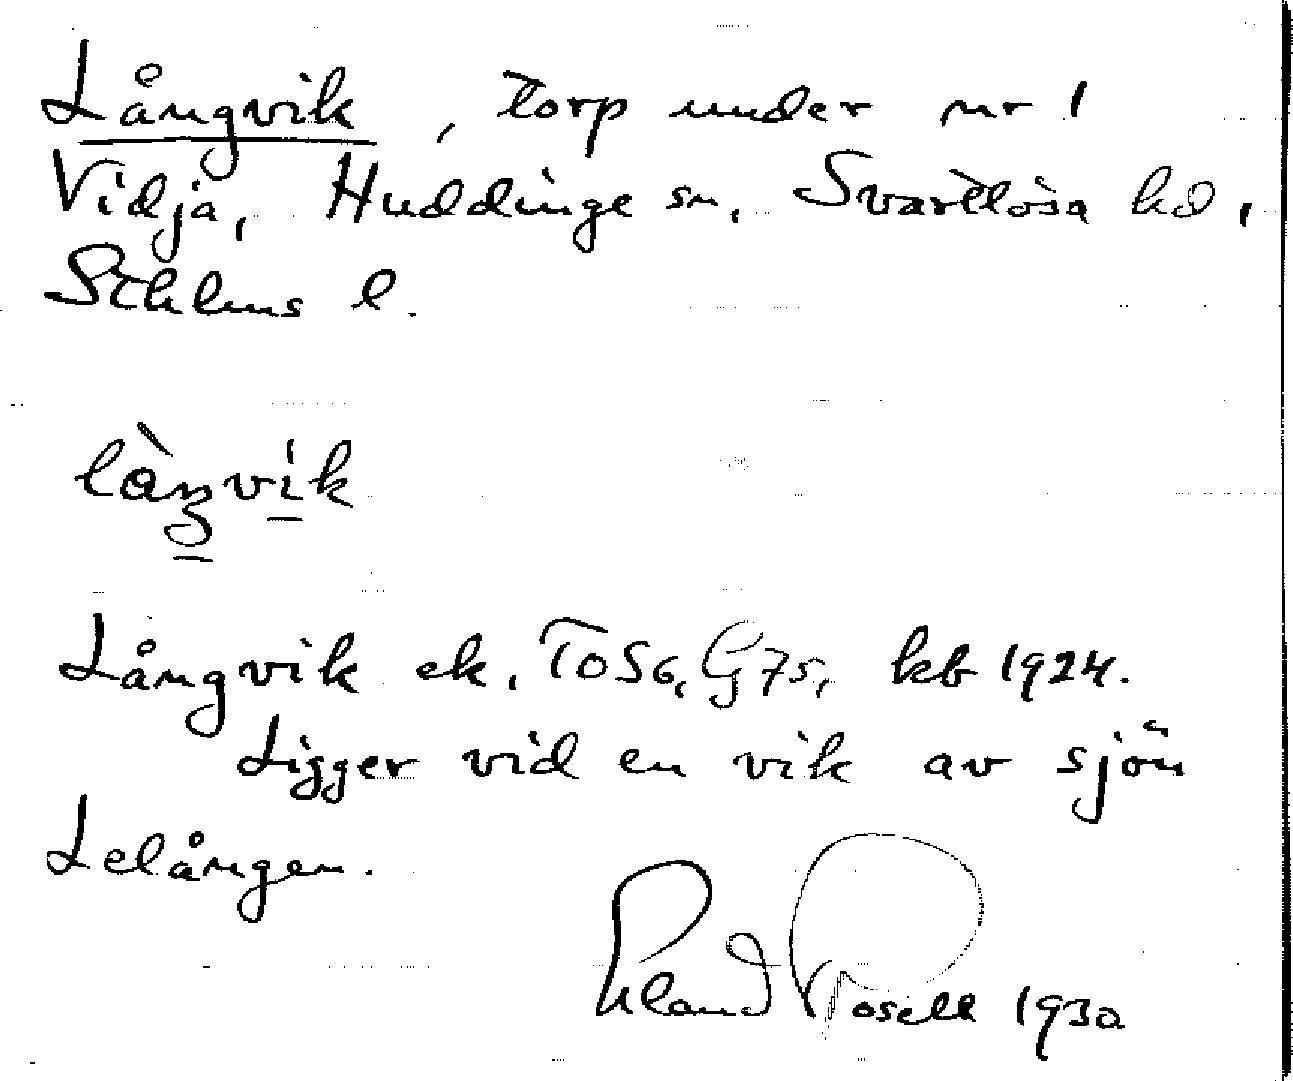 Långvik, torp under nr 1
Vidja, Huddinge sn, Svartlösa hd,
Sthlms l.
Långvik ek, To56, G75, kb 1924.
Ligger vid en vik av sjön
Lelången.
Rosell 1930